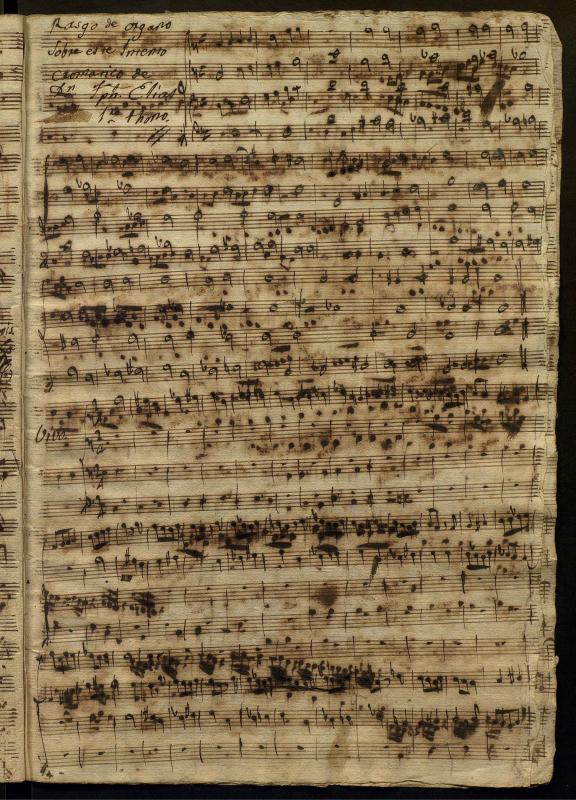 Rasgo de organo
Sobre este Intento
Cromatico de
Dn Jph. Elias
1º thono.
Vivo.